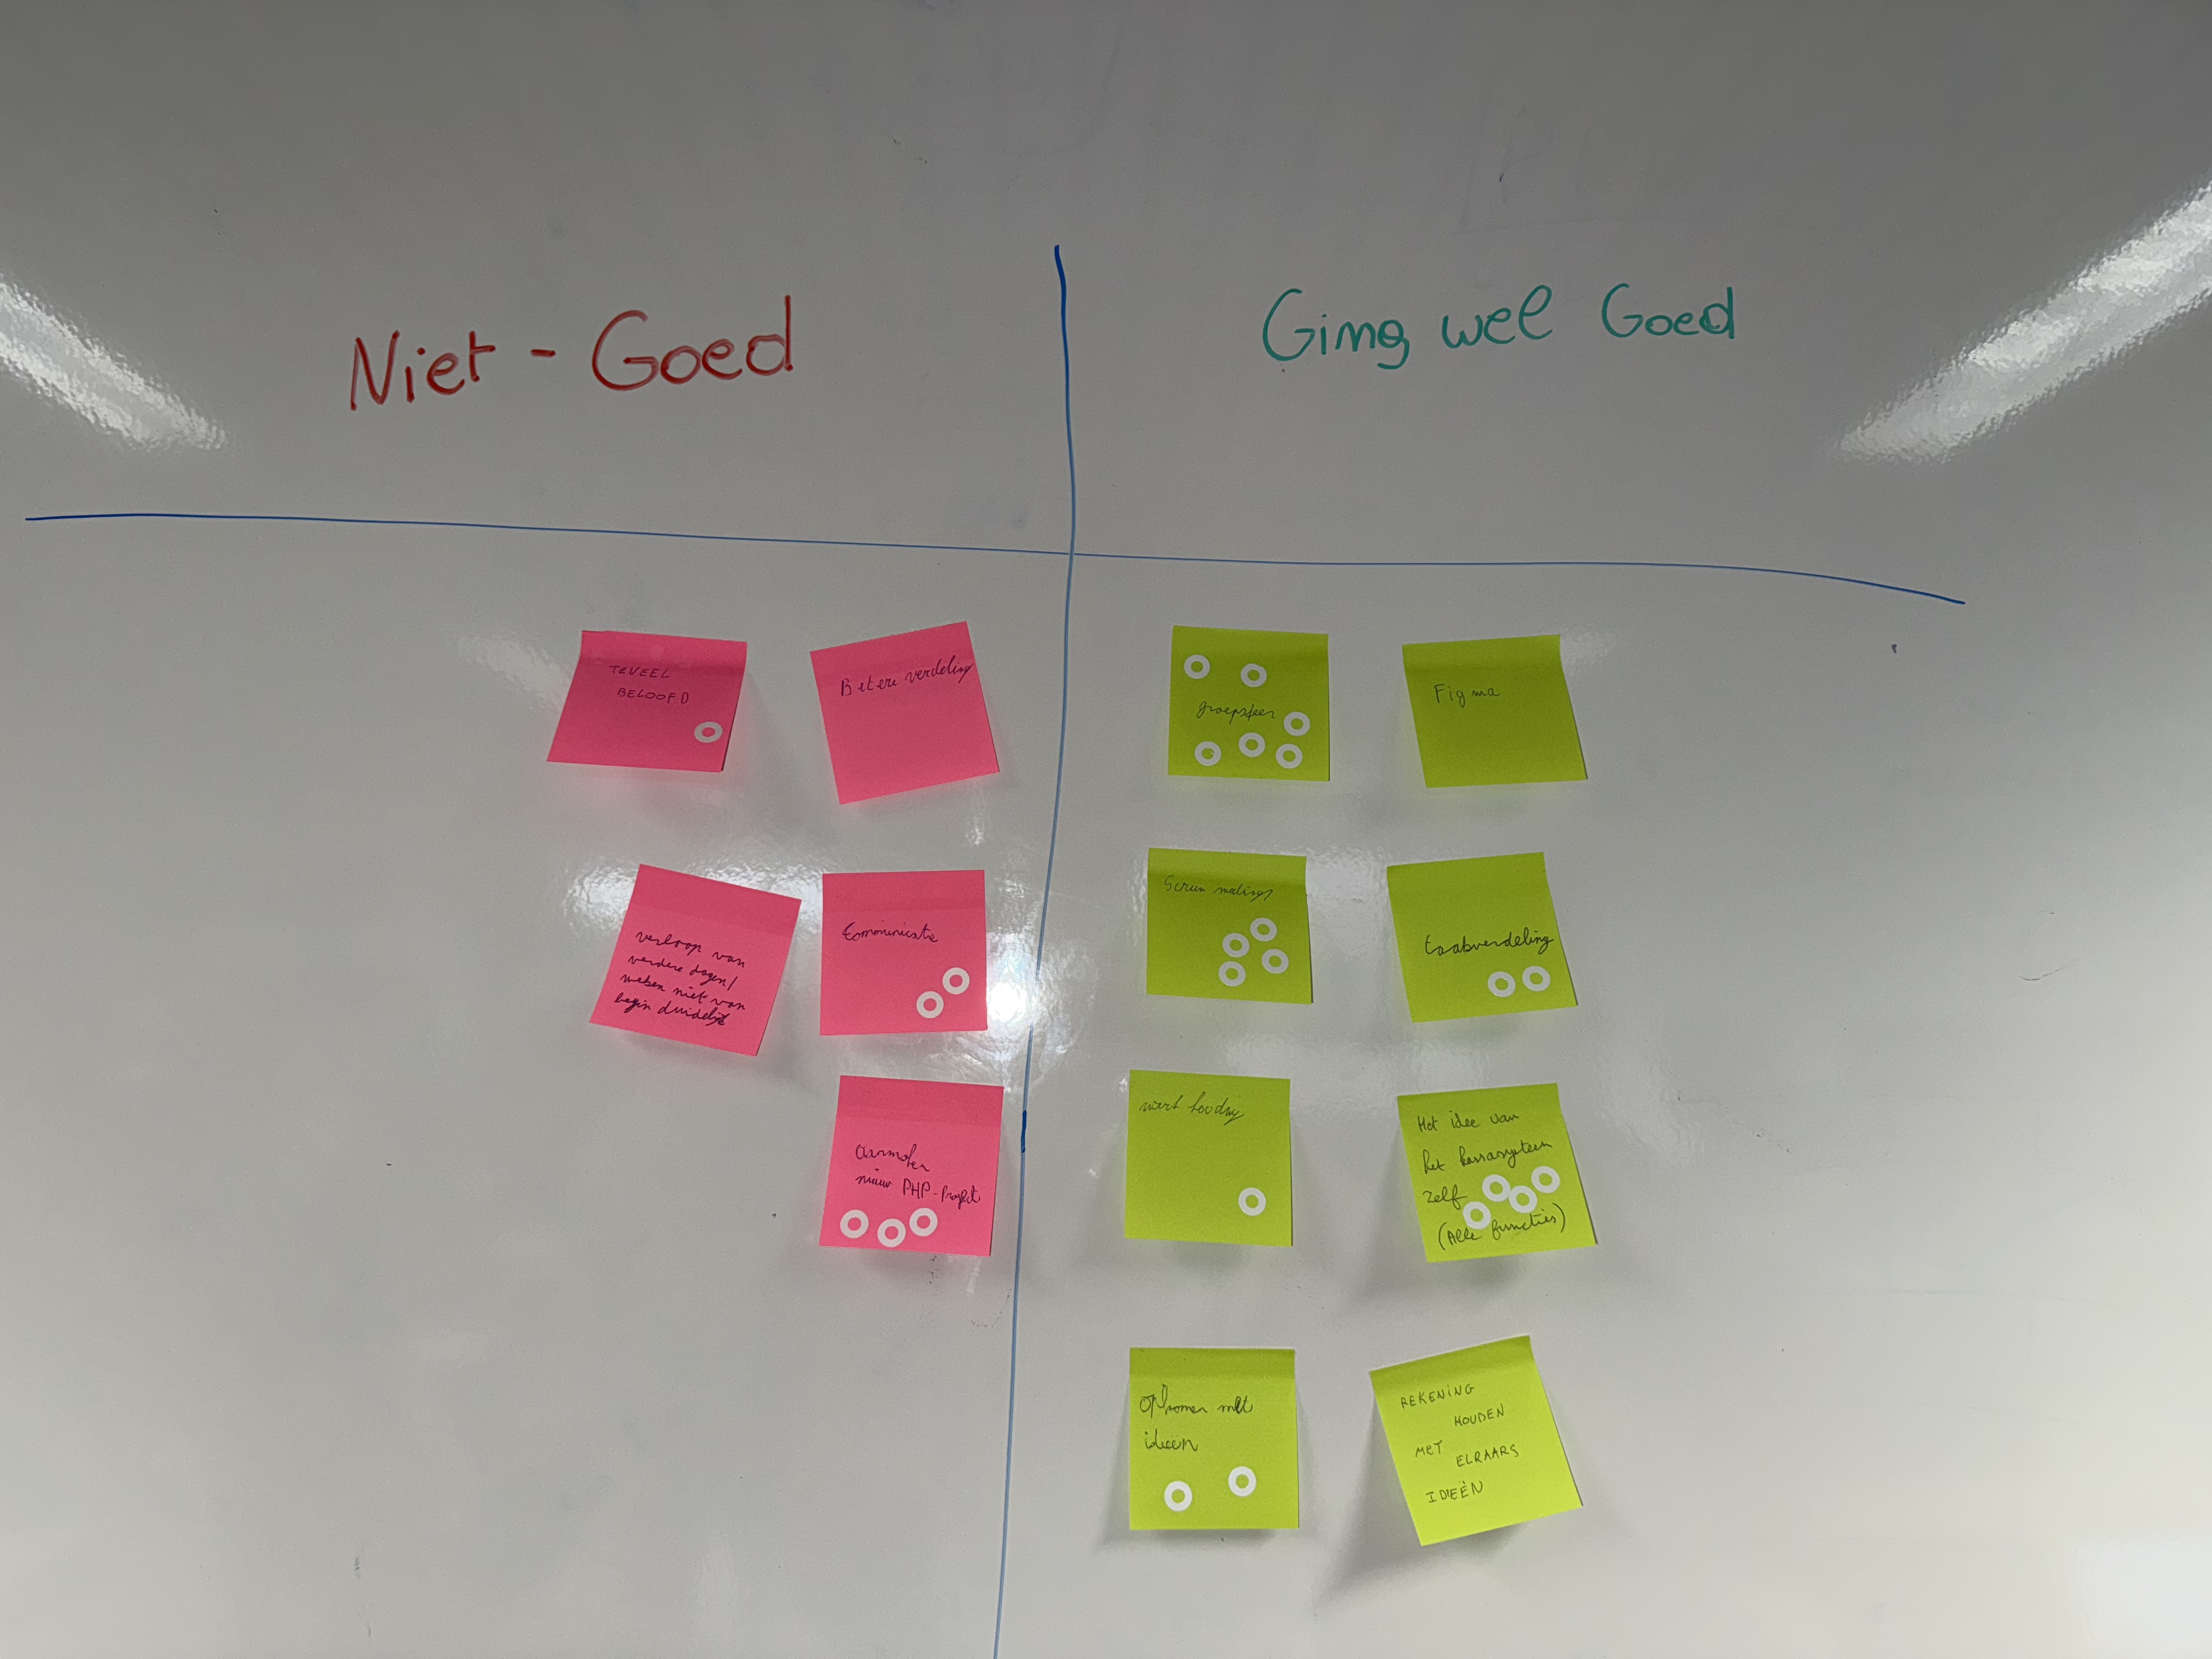 Niet - Goed
Ging wel Goed
TEVEEL
BELOOFD
Betere verdeling
verloop van
verdere dagen/
weken niet van
begin duidelijk
Communicatie
Aanmaken
nieuw PHP-Project
groepsfeer
Figma
Scrum meetings
taakverdeling
werk houding
Het idee van
het kassasysteem
zelf
(Alle functies)
Opkomen met
ideeën
REKENING
HOUDEN
MET
ELKAARS
IDEEËN